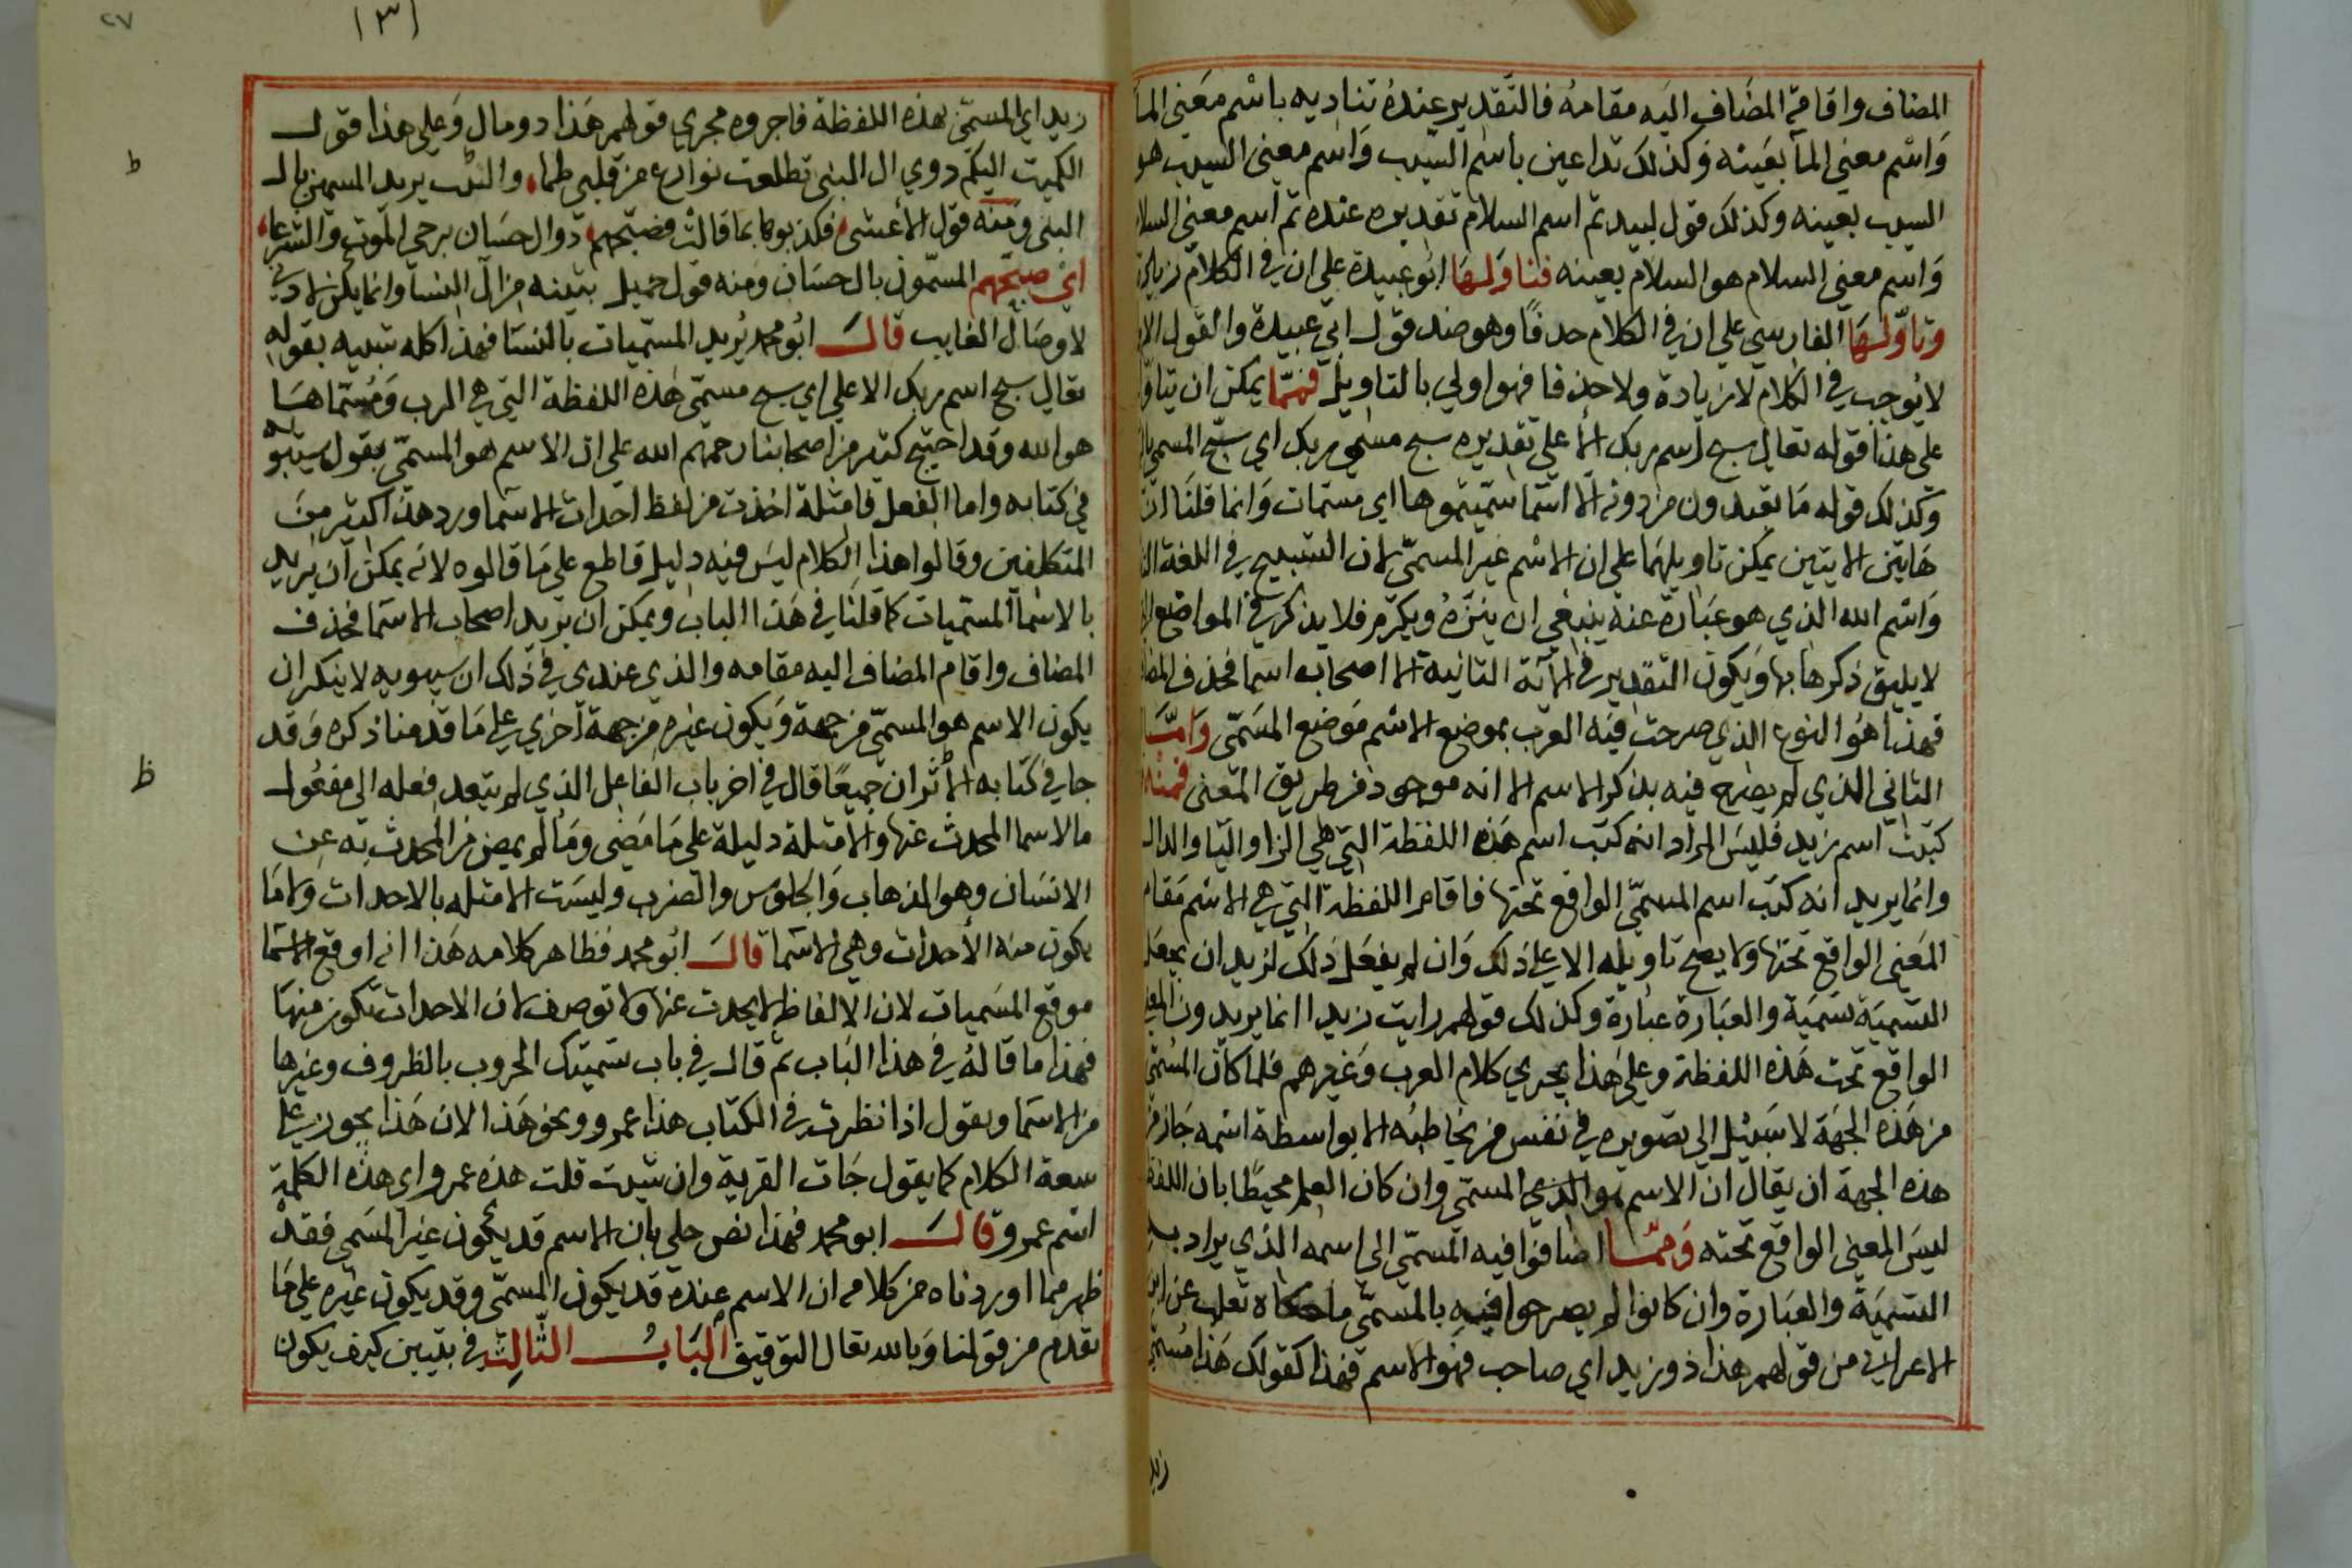 المضاف واقامة المضاف اليه مقامه فالتقدير عنده تناديه باسم معنى الما
واسم معنى المآ بعينه وكذلك تداعين باسم الشيب واسم معنى الشيب هو
الشيب بعينه وكذلك قول لبيد ثم اسم السلام تقديره عنده ثم اسم معنى السلا
واسم معنى السلام هو السلام بعينه فتاولها ابو عبيدة على ان في الكلام زيادة
وتاولها الفارسي على ان في الكلام حذفا وهو ضد قول ابي عبيدة والقول
لا يوجب في الكلام لا زيادة ولا حذفا فهو اولى بالتاويل فمما يمكن ان يتاول
على هذا قوله تعالى سبح اسم ربك الاعلى تقديره سبح مسمى ربك اي سبح المسمى
وكذلك قوله ما تعبدون من دونه الا اسما سميتموها اي مسمات وانما قلنا ان
هاتين الايتين يمكن تاويلهما على ان الاسم غير المسمى لان التسبيح في اللغة
واسم الله الذي هو عبارة عنه ينبغي ان ينزه ويكرم فلا يذكر في المواضع
لا يليق ذكرها بها ويكون التقدير في الآية الثانية الا اصحاب اسما فحذف المضاف
فهذا هو النوع الذي صرحت فيه العرب بموضع الاسم موضع المسمى واما
الثاني الذي لم يصرح فيه بذكر الاسم الا انه موجود من طريق المعنى فمنه
كتبت اسم زيد فليس المراد انه كتب اسم هذه اللفظة التي هي الزا واليا والدال
وانما يريد انه كتب اسم المسمى الواقع تحتها فاقام اللفظة التي هي الاسم مقام
المعنى الواقع تحتها ولا يصح تاويله الا على ذلك وان لم يفعل ذلك لزيد ان يجعل
التسمية تسمية والعبارة عبارة وكذلك قولهم رايت زيدا انما يريدون المعنى
الواقع تحت هذه اللفظة وعلى هذا يجري كلام العرب وغيرهم فلما كان المسمى
من هذه الجهة لا سبيل الى تصويره في نفس من يخاطبه الا بواسطة اسمه جاز من
هذه الجهة ان يقال ان الاسم هو الذي المسمى وان كان العلم محيطا بان اللفظ
ليس المعنى الواقع تحته ومما اضافوا فيه المسمى الى اسمه الذي يراد به
التسمية والعبارة وان كانوا لم يصرحوا فيه بالمسمى ما حكاه ثعلب عن ابن
الاعرابي من قولهم هذا ذو زيد اي صاحب هو الاسم فهذا كقولك هذا مسمى
زيد
٢٧
(٣١
زيد اي المسمى بهذه اللفظة فاجروه مجرى قولهم هذا ذو مال وعلى هذا قول
الكميت اليكم ذوي ال النبي تطلعت نوازع من قلبي ظماء والبب يريد المسمين بال
النبي ومنه قول الاعشى فكذبوها بما قالت فصبحهم ذو ال حسان يزجي الموت والشرعا
اي صبحهم المسمون بال حسان ومنه قول جميل بثينة من ال النسا وانما يكن لادني
لا وصال الغايب قال ابو محمد يريد المسميات بالنسا فهذا كله شبيه بقوله
تعالى سبح اسم ربك الاعلى اي سبح مسمى هذه اللفظة التي هي الرب ومسماها
هو الله وقد احتج كثير من اصحابنا رحمهم الله على ان الاسم هو المسمى بقول سيبويه
في كتابه واما الفعل فامثلة اخذت من لفظ احداث الاسما ورد هذا كثير من
المتكلمين وقالوا هذا الكلام ليس فيه دليل قاطع على ما قالوه لانه يمكن ان يريد
بالاسما المسميات كما قلنا في هذا الباب ويمكن ان يريد اصحاب الاسما فحذف
المضاف واقام المضاف اليه مقامه والذي عندي في ذلك ان سيبويه لا ينكر ان
يكون الاسم هو المسمى من جهة ويكون غيره من جهة اخرى على ما قدمنا ذكره وقد
جا في كتابه الاثران جميعا قال في اخر باب الفاعل الذي لم يتعد فعله الى مفعول
مالاسما المحدث عنها والامثلة دليلة على ما مضى وما لم يمض من المحدث به عن
الانسان وهو الذهاب والجلوس والضرب وليست الامثله بالاحداث ولا ما
يكون منه الاحداث وهي الاسما قال ابو محمد فظاهر كلامه هذا انه اوقع الاسما
موقع المسميات لان الالفاظ لا يحدث عنها ولا توصف لان الاحداث تكون منها
فهذا ما قاله في هذا الباب ثم قال في باب تسميتك الحروب بالظروف وغيرها
من الاسما ويقول اذا نظرت في الكتاب هذا عمرو ونحو هذا الان هذا يجوز على
سعة الكلام كما يقول جات القرية وان شيت قلت هذه عمرو اي هذه الكلمة
اسم عمرو قال ابو محمد فهذا نص جلي بان الاسم قد يكون غير المسمى فقد
ظهر مما اوردناه من كلامه ان الاسم عنده قد يكون المسمى وقد يكون غيره على ما
تقدم من قولنا وبالله تعالى التوفيق الباب الثالث في تبيين كيف يكون
ط
ظ